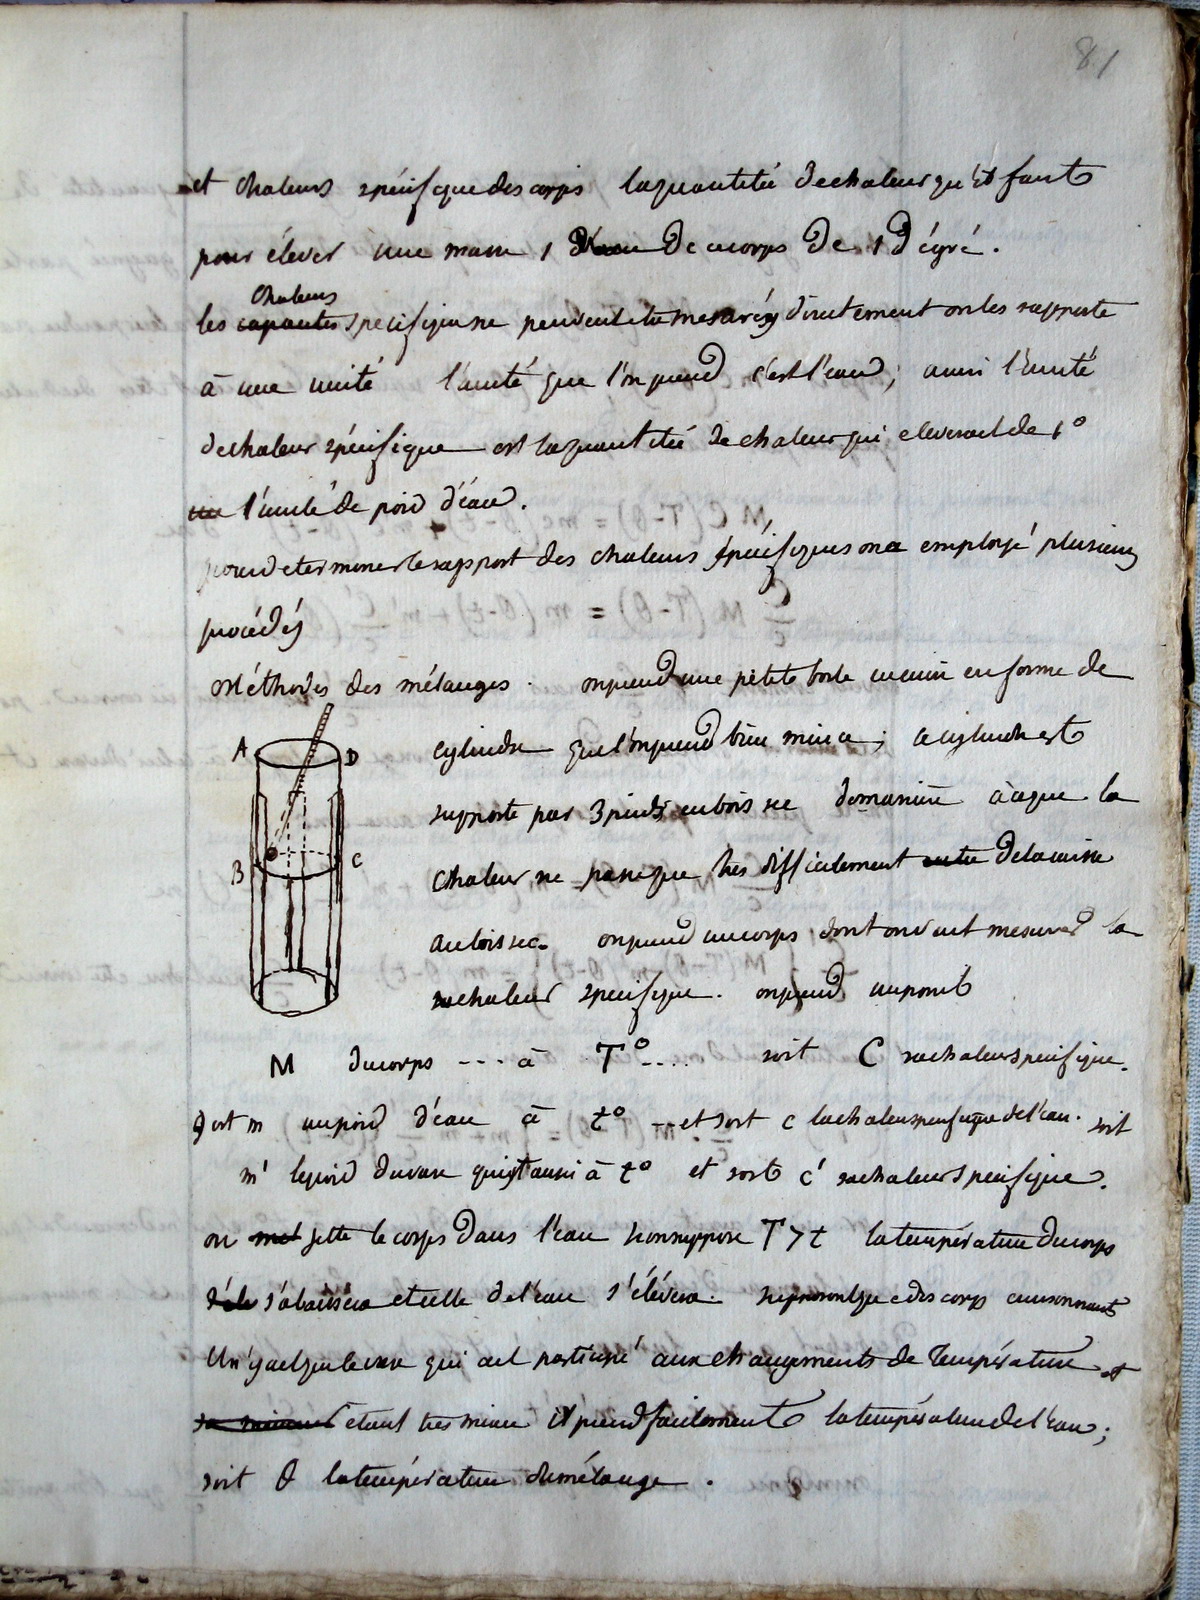 81
et chaleurs spécifique des corps la quantitée de chaleur qu'il faut
pour élever une masse 1 de ce corps de 1 dégré.
chaleurs
les capacités specifique ne peuvent etre mesurés directement on les rapporte
à une unité l'unité que l'on prend c'est l'eau; ainsi l'unité
de chaleur spécifique est la quantitée de chaleur qui eleverait de 1°
une l'unité de poid d'eau.
pour determiner le rapport des chaleurs spécifiques on a employé plusieurs
procédés
Méthodes des mélanges. on prend une petite boite en forme de
cylindre que l'on prend bien mince; ce cylindre est
A D
supporté par 3 pieds en bois sec de maniere à ce que la
B C
chaleur ne passe que très difficilement entre de la caisse
au bois sec. on prend un corps dont on veut mesurer la
sa chaleur specifique. on prend un poid
M du corps --- à T°.... soit C sa chaleur specifique.
soit m un poid d'eau à t° -- et soit c la chaleur specifique de l'eau. soit
m' le poid du vase qui est aussi à t° et soit c' sa chaleur specifique.
on met jette le corps dans l'eau si on suppose T > t la température du corps
s'abaissera et celle de l'eau s'élévera. des corps environnants
il n'y a el que le vase qui ait participé aux changements de température et
etant tres mince il prend facilement la température de l'eau;
soit θ la température du mélange.